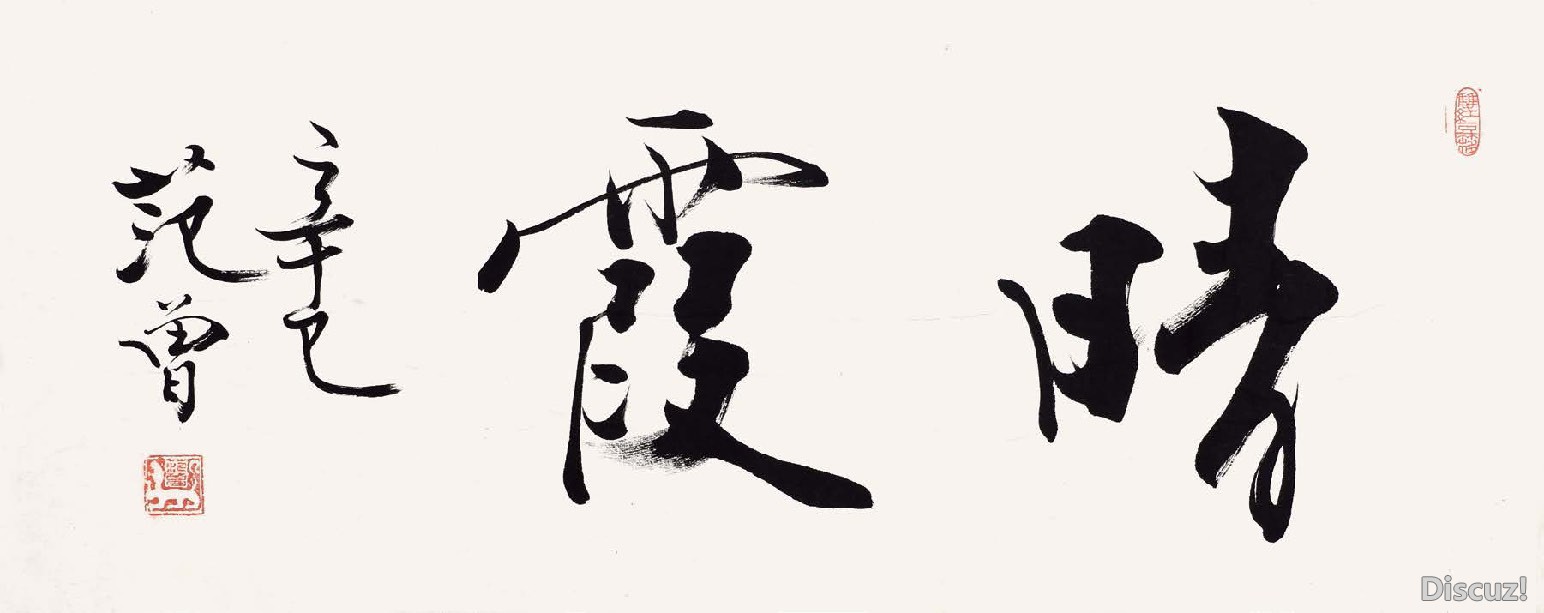 晴霞
辛巳
范曾
Discuz!